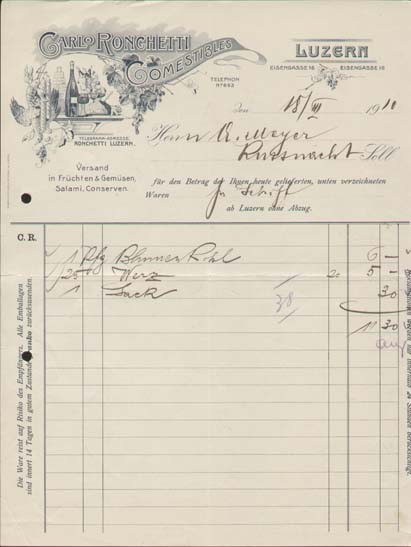 CARLO RONCHETTI
COMESTIBLES
LUZERN
EISENGASSE 16 EISENGASSE 16
TELEPHON
No 653
TELEGRAMM-ADRESSE:
RONCHETTI LUZERN.
Versand
in Früchten & Gemüsen,
Salami, Conserven.
den 18/VII 1910
Herrn A. Meyer
Küssnacht Soll
für den Betrag der Ihnen heute gelieferten, unten verzeichneten
Waren
ab Luzern ohne Abzug.
C. R.
1 Blumenkohl 6 —
25 Werz 20 5 —
1 Sack 30
38
11 30
Die Ware reist auf Risiko des Empfängers. Alle Emballagen
sind innert 14 Tagen in gutem Zustande franko zurückzusenden.